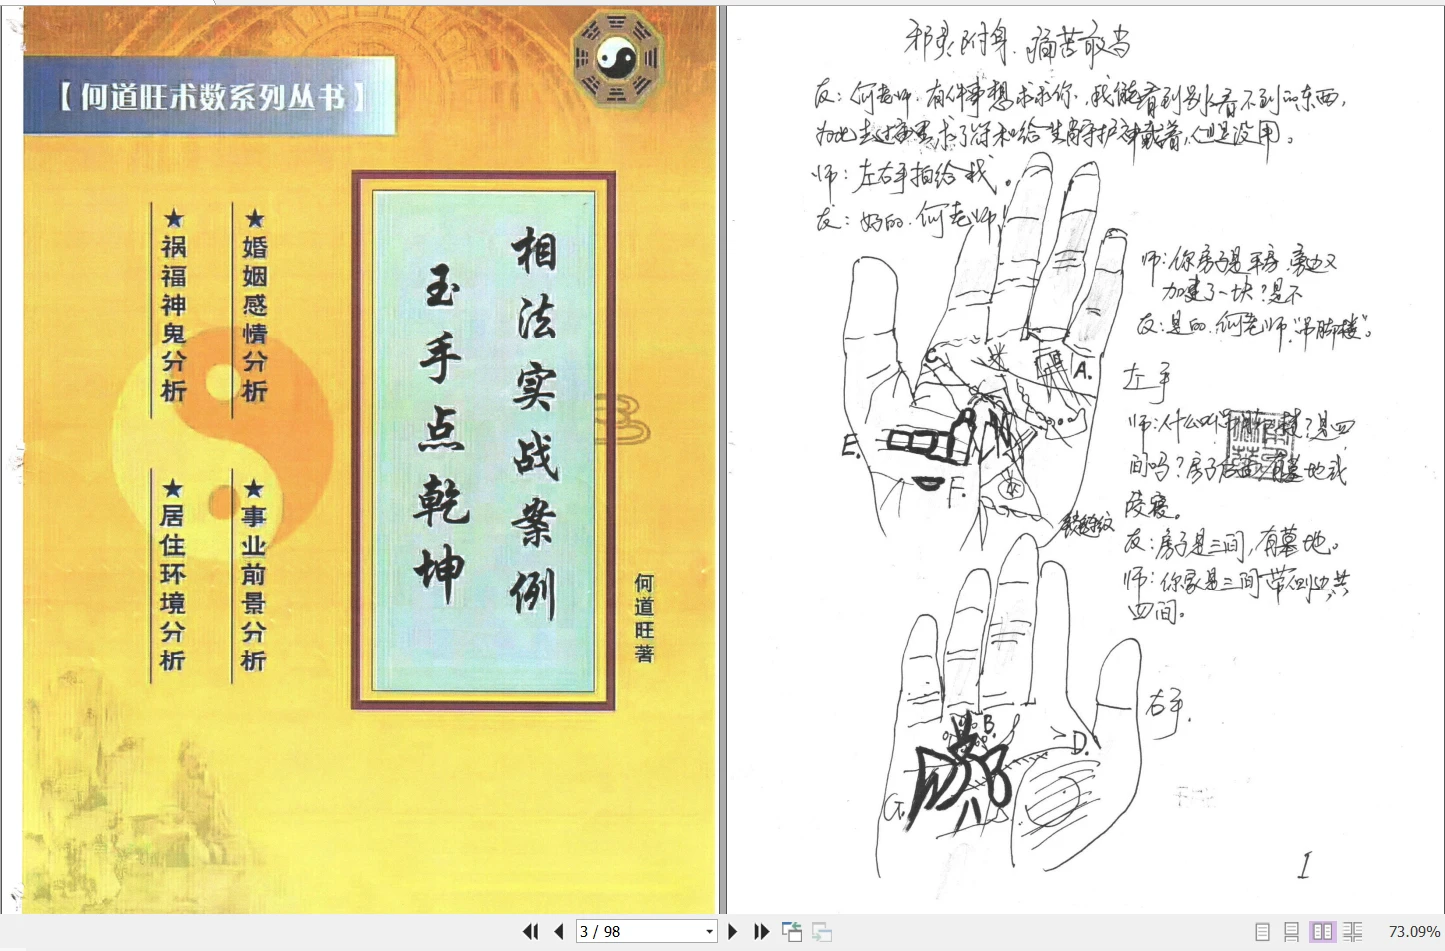 【何道旺术数系列丛书】
相法实战案例
玉手点乾坤
★婚姻感情分析
★祸福神鬼分析
★事业前景分析
★居住环境分析
何道旺著
邪灵附身.痛苦敢当
友：何老师.有件事想求求你.我能看到别人看不到的东西，
为此去过求了符和给生肖守护神戴着，但是没用。
师：左右手拍给我.
友：好的.何老师！
师：你房子是平房.旁边又
加建了一块？是不
友：是的.何老师.“吊脚楼”。
左手
师：什么叫吊脚楼？是四
间吗？房子后面有墓地或
陵寝。
友：房子是三间，有墓地。
师：你家是三间带侧边共
四间。
C.
A.
E.
F.
锁链纹
右手.
B.
D.
G.
1
3 / 98
73.09%